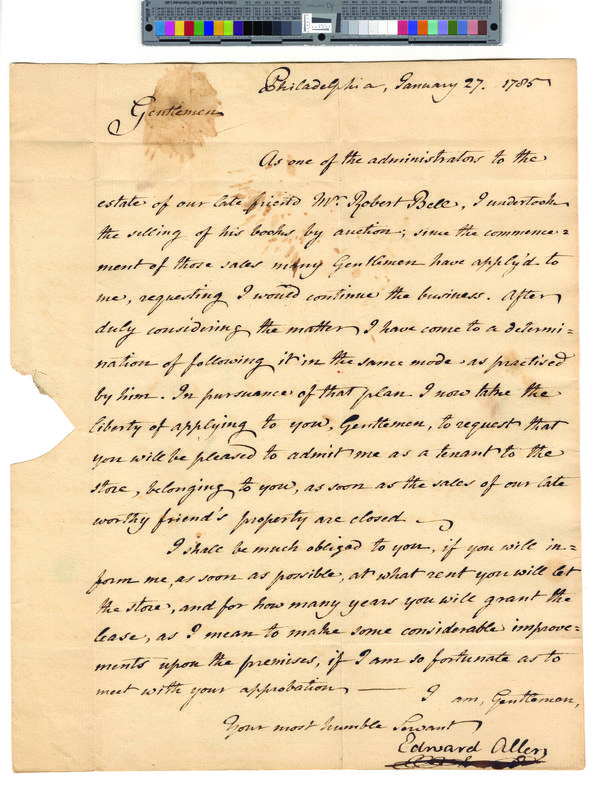 Philadelphia, January 27. 1785
Gentlemen
As one of the administrators to the
estate of our late friend Mr. Robert Bell, I undertook
the selling of his books by auction; since the commence=
ment of those sales many Gentlemen have apply'd to
me, requesting I would continue the business. After
duly considering the matter I have come to a determi=
nation of following it in the same mode as practised
by him. In pursuance of that plan I now take the
liberty of applying to you, Gentlemen, to request that
you will be pleased to admit me as a tenant to the
store, belonging to you, as soon as the sales of our late
worthy friend's property are closed.
I shall be much obliged to you, if you will in=
form me, as soon as possible, at what rent you will let
the store, and for how many years you will grant the
lease, as I mean to make some considerable improve=
ments upon the premises, if I am so fortunate as to
meet with your approbation — I am, Gentlemen,
Your most humble Servant
Edward Allen